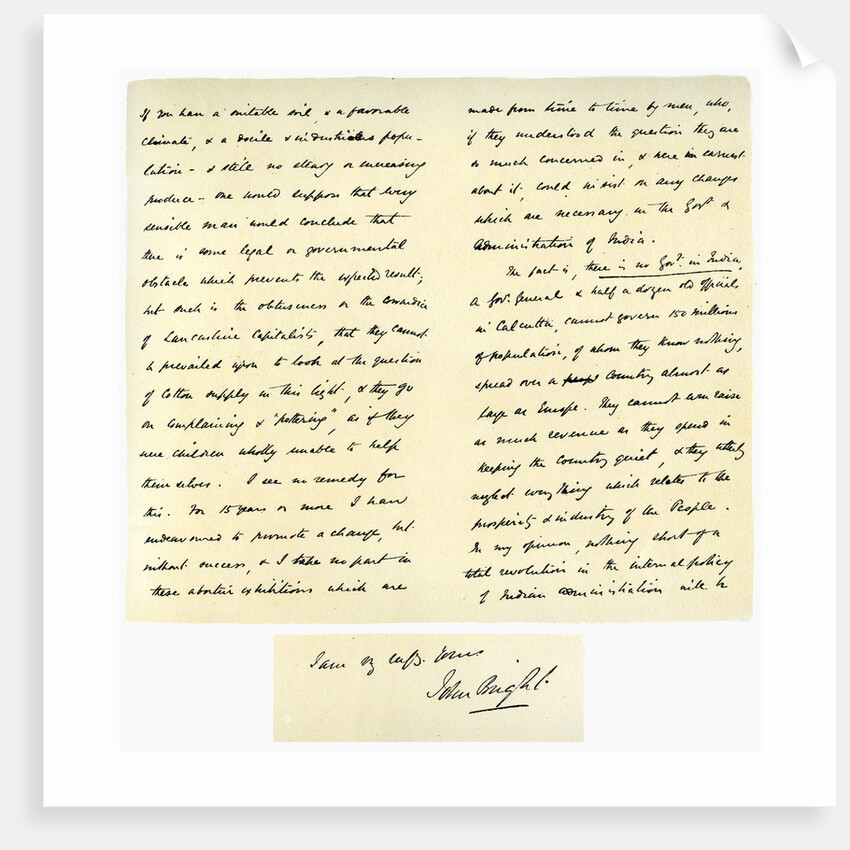 If you have a suitable soil, & a favorable
climate, & a docile & industrious popu-
lation - & still no steady or increasing
produce - one would suppose that every
sensible man would conclude that
there is some legal or governmental
obstacle which prevents the expected result;
but such is the obtuseness or the cowardice
of Lancashire Capitalists, that they cannot
be prevailed upon to look at the question
of Cotton supply in this light, & they go
on complaining & "pottering", as if they
were children wholly unable to help
themselves. I see no remedy for
this. For 15 years or more I have
endeavoured to promote a change, but
without success, & I take no part in
these abortive exhibitions which are
made from time to time by men, who,
if they understood the question they are
so much concerned in, & were in earnest
about it, could insist on any changes
which are necessary in the Govt &
Administration of India.
The fact is, there is no Govt in India,
A Gov. General & half a dozen old officials
in Calcutta, cannot govern 150 millions
of population, of whom they know nothing,
spread over a Country almost as
large as Europe. They cannot even raise
as much revenue as they spend in
keeping the Country quiet, & they utterly
neglect everything which relates to the
prosperity & industry of the People.
In my opinion, nothing short of a
total revolution in the internal policy
of Indian administration will be
I am Yours
John Bright.